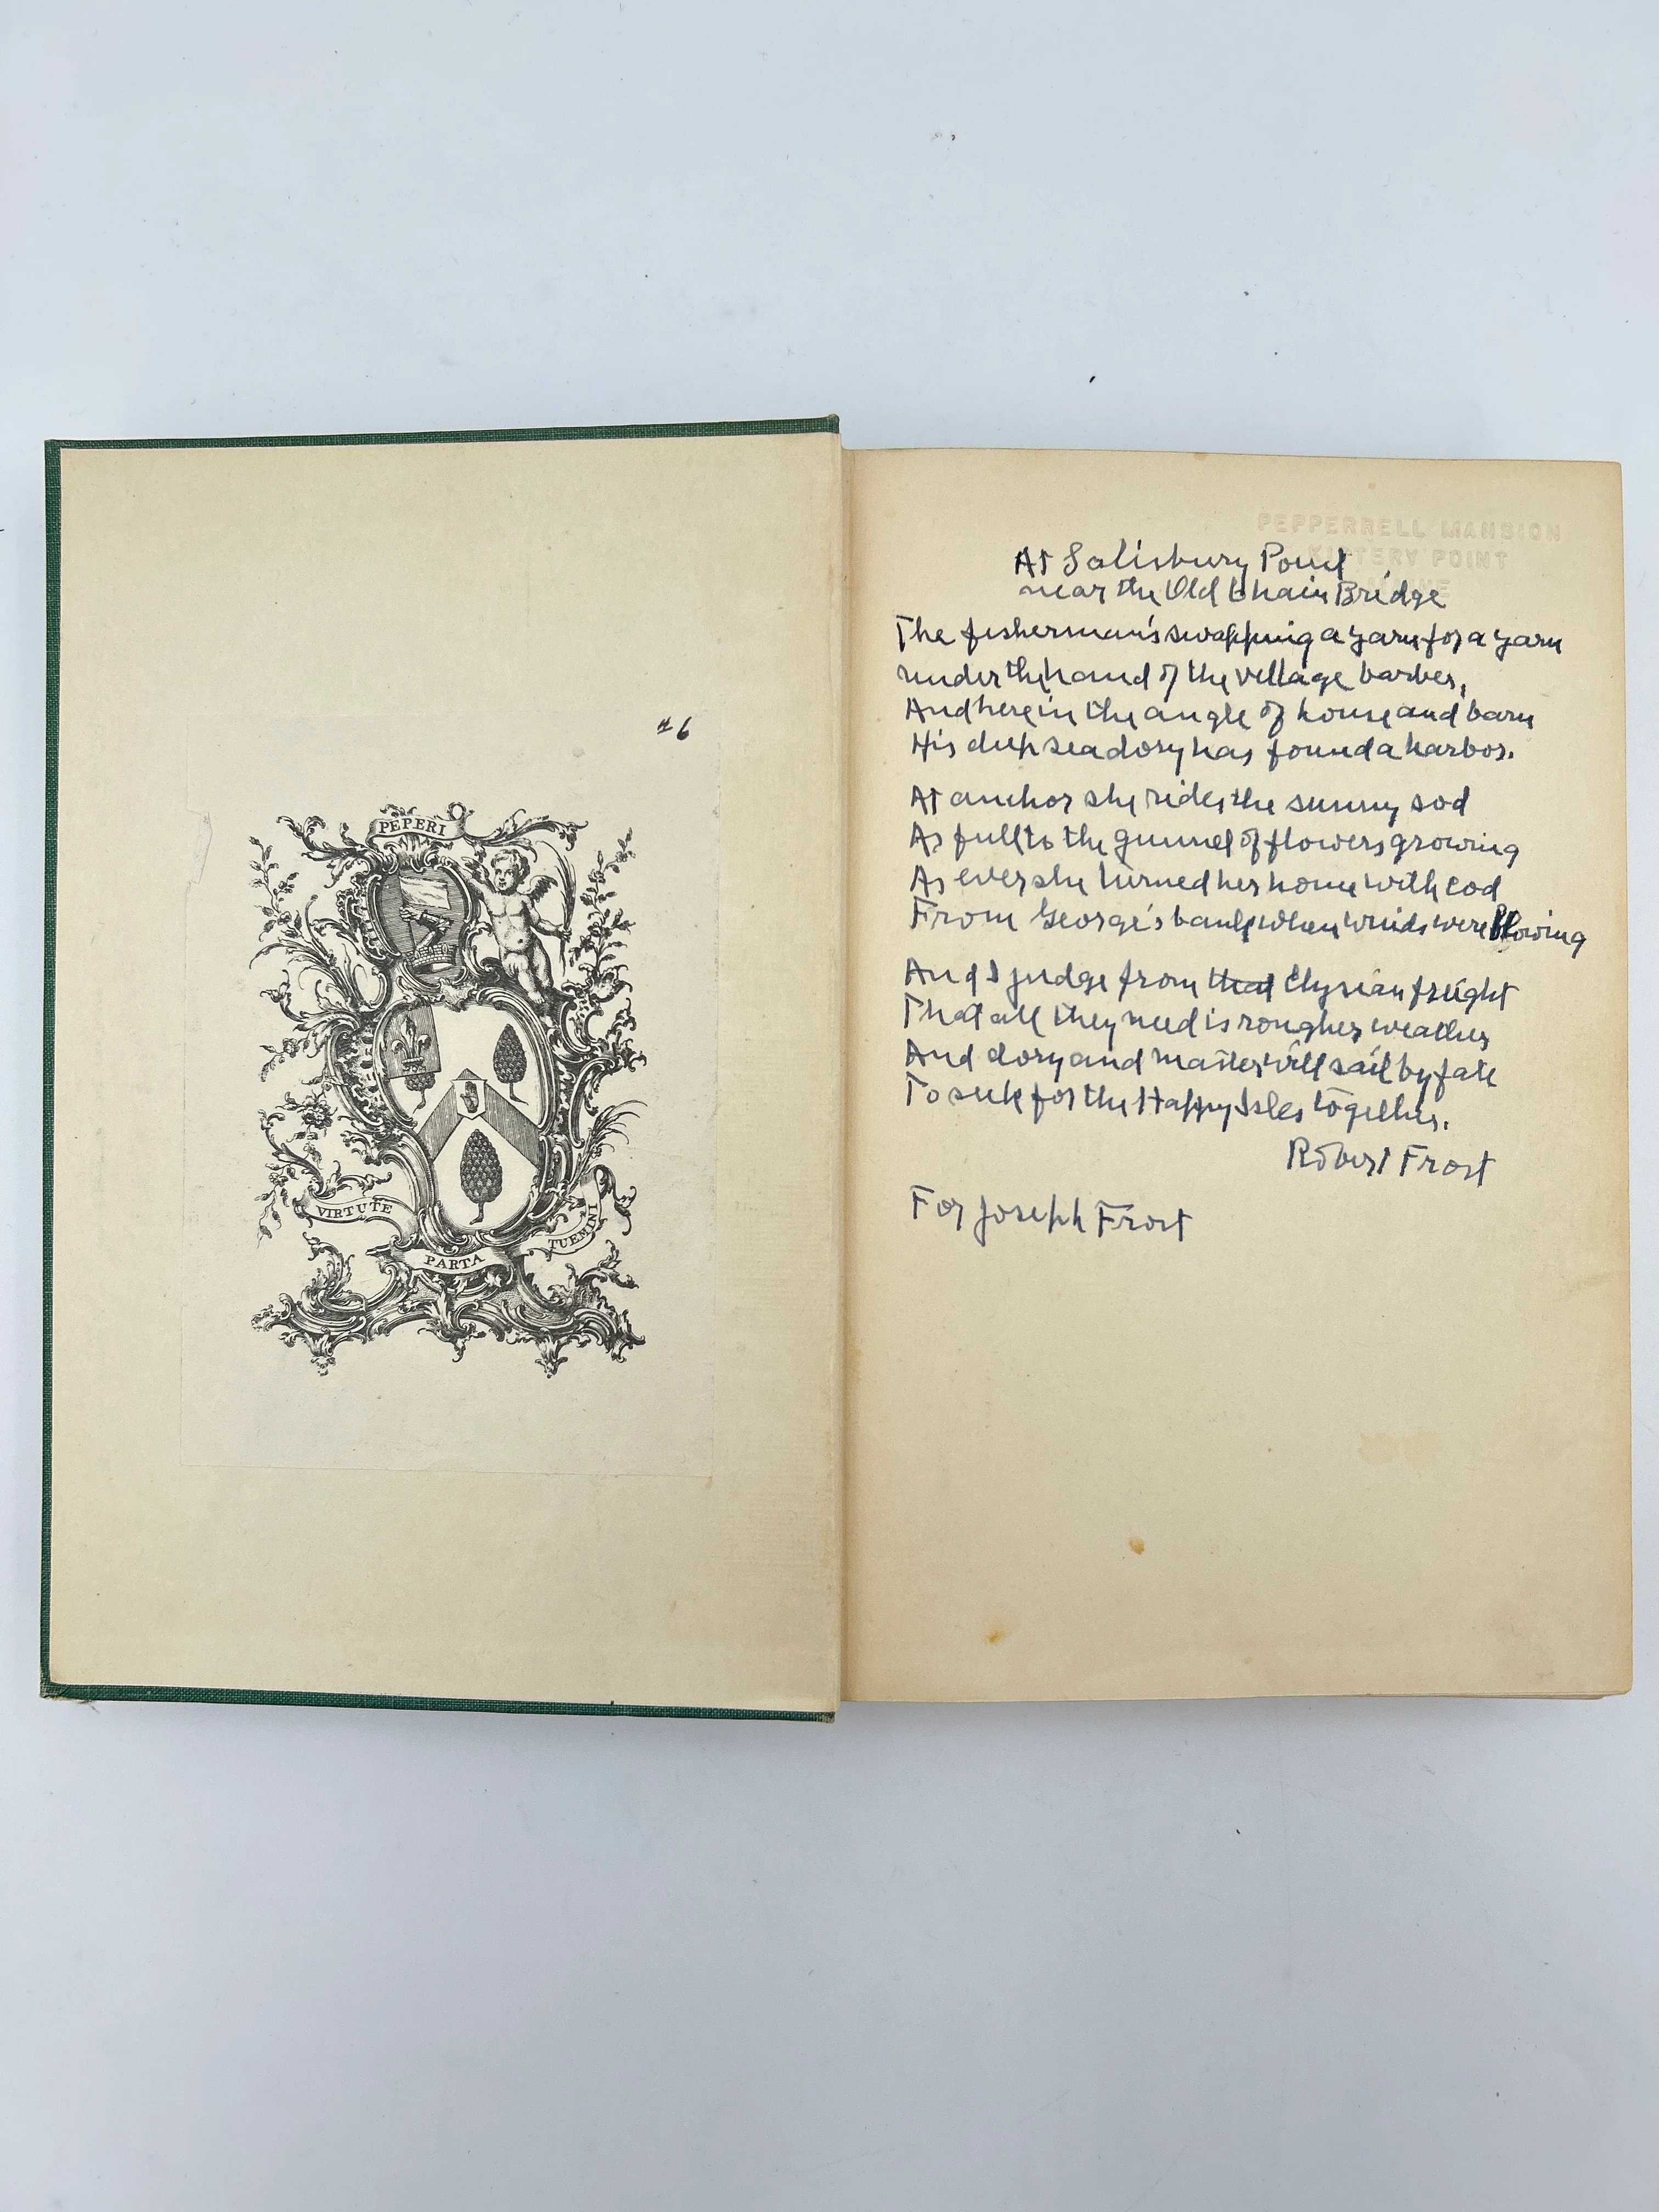 #6
PEPERI
VIRTUTE
PARTA
TUEMINI
PEPPERRELL MANSION
KITTERY POINT
MAINE
At Salisbury Point
near the Old Chain Bridge
The fisherman's swapping a yarn for a yarn
under the hand of the village barber,
And here in the angle of house and barn
His deep sea dory has found a harbor.
At anchor she rides the sunny sod
As full to the gunnel of flowers growing
As ever she turned her home with cod
From George's bank when winds were blowing
And I judge from that Elysian freight
That all they need is rougher weather
And dory and master will sail by fate
To seek for the Happy Isles together.
Robert Frost
For Joseph Frost